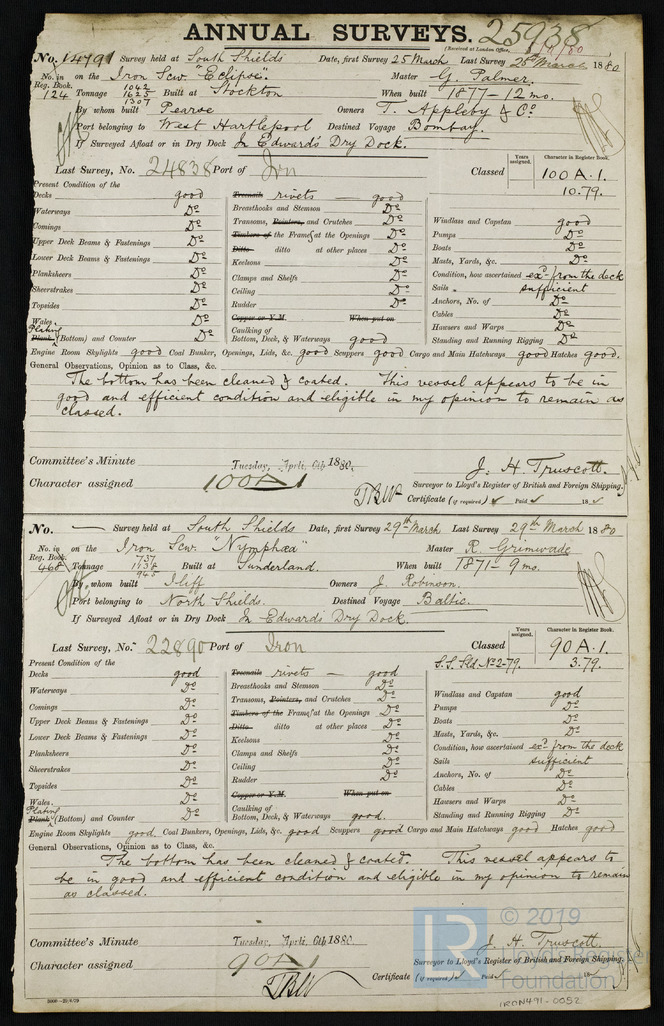 ANNUAL SURVEYS. 25938
(Received at London Office,
No. 14791 Survey held at South Shields Date, first Survey 25 March Last Survey 25th March 1880
No. in Reg. Book. on the Iron Scw. "Eclipse" Master G. Palmer.
124 Tonnage 1042 1625 1307 Built at Stockton When built 1877 - 12 mo.
By whom built Pearse Owners T. Appleby & Co
Port belonging to West Hartlepool Destined Voyage Bombay.
If Surveyed Afloat or in Dry Dock In Edwards Dry Dock.
Last Survey, No. 24838 Port of Irn Classed Years assigned. Character in Register Book. 100 A.1.
10.79.
Present Condition of the
Decks good
Waterways Do
Comings Do
Upper Deck Beams & Fastenings Do
Lower Deck Beams & Fastenings Do
Planksheers Do
Sheerstrakes Do
Topsides Do
Wales. Do
Plating Plank (Bottom) and Counter Do
Treenails rivets — good
Breasthooks and Stemson Do
Transoms, Pointers, and Crutches Do
Timbers of the Frames at the Openings Do
Ditto ditto at other places Do
Keelsons Do
Clamps and Shelfs Do
Ceiling Do
Rudder Do
Copper or Y.M. When put on
Caulking of Bottom, Deck, & Waterways good
Windlass and Capstan good
Pumps Do
Boats Do
Masts, Yards, &c. Do
Condition, how ascertained exd from the deck
Sails sufficient
Anchors, No. of Do
Cables Do
Hawsers and Warps Do
Standing and Running Rigging Do
Engine Room Skylights good Coal Bunker, Openings, Lids, &c. good Scuppers good Cargo and Main Hatchways good Hatches good.
General Observations, Opinion as to Class, &c.
The bottom has been cleaned & coated. This vessel appears to be in
good and efficient condition and eligible in my opinion to remain as
classed.
Committee's Minute Tuesday, April 6th 1880.
J. H. Truscott.
Character assigned 100 A 1
Surveyor to Lloyd's Register of British and Foreign Shipping.
Certificate (if required) Paid 18
No. — Survey held at South Shields Date, first Survey 29th March Last Survey 29th March 1880
No. in Reg. Book. on the Iron Scw. "Nymphæa" Master R. Grimwade
468 Tonnage 737 1138 945 Built at Sunderland. When built 1871 - 9 mo.
By whom built Iliff Owners J. Robinson.
Port belonging to North Shields. Destined Voyage Baltic.
If Surveyed Afloat or in Dry Dock In Edwards Dry Dock.
Last Survey, No. 22890 Port of Iron Classed Years assigned. Character in Register Book. 90 A.1.
S.S. Sld. No 2-79. 3.79.
Present Condition of the
Decks good
Waterways Do
Comings Do
Upper Deck Beams & Fastenings Do
Lower Deck Beams & Fastenings Do
Planksheers Do
Sheerstrakes Do
Topsides Do
Wales. Do
Plating Plank (Bottom) and Counter Do
Treenails rivets — good
Breasthooks and Stemson Do
Transoms, Pointers, and Crutches Do
Timbers of the Frames at the Openings Do
Ditto ditto at other places Do
Keelsons Do
Clamps and Shelfs Do
Ceiling Do
Rudder Do
Copper or Y.M. When put on
Caulking of Bottom, Decks, & Waterways good.
Windlass and Capstan good
Pumps Do
Boats Do
Masts, Yards, &c. Do
Condition, how ascertained exd from the deck
Sails sufficient
Anchors, No. of Do
Cables Do
Hawsers and Warps Do
Standing and Running Rigging Do
Engine Room Skylights good Coal Bunkers, Openings, Lids, &c. good Scuppers good Cargo and Main Hatchways good Hatches good
General Observations, Opinion as to Class, &c.
The bottom has been cleaned & coated. This vessel appears to
be in good and efficient condition and eligible in my opinion to remain
as classed.
Committee's Minute Tuesday, April 6th 1880
J. H. Truscott.
Character assigned 90 A 1
Surveyor to Lloyd's Register of British and Foreign Shipping.
Certificate (if required) Paid 18
LR © 2019
Lloyd's Register
Foundation
IRON491-0052